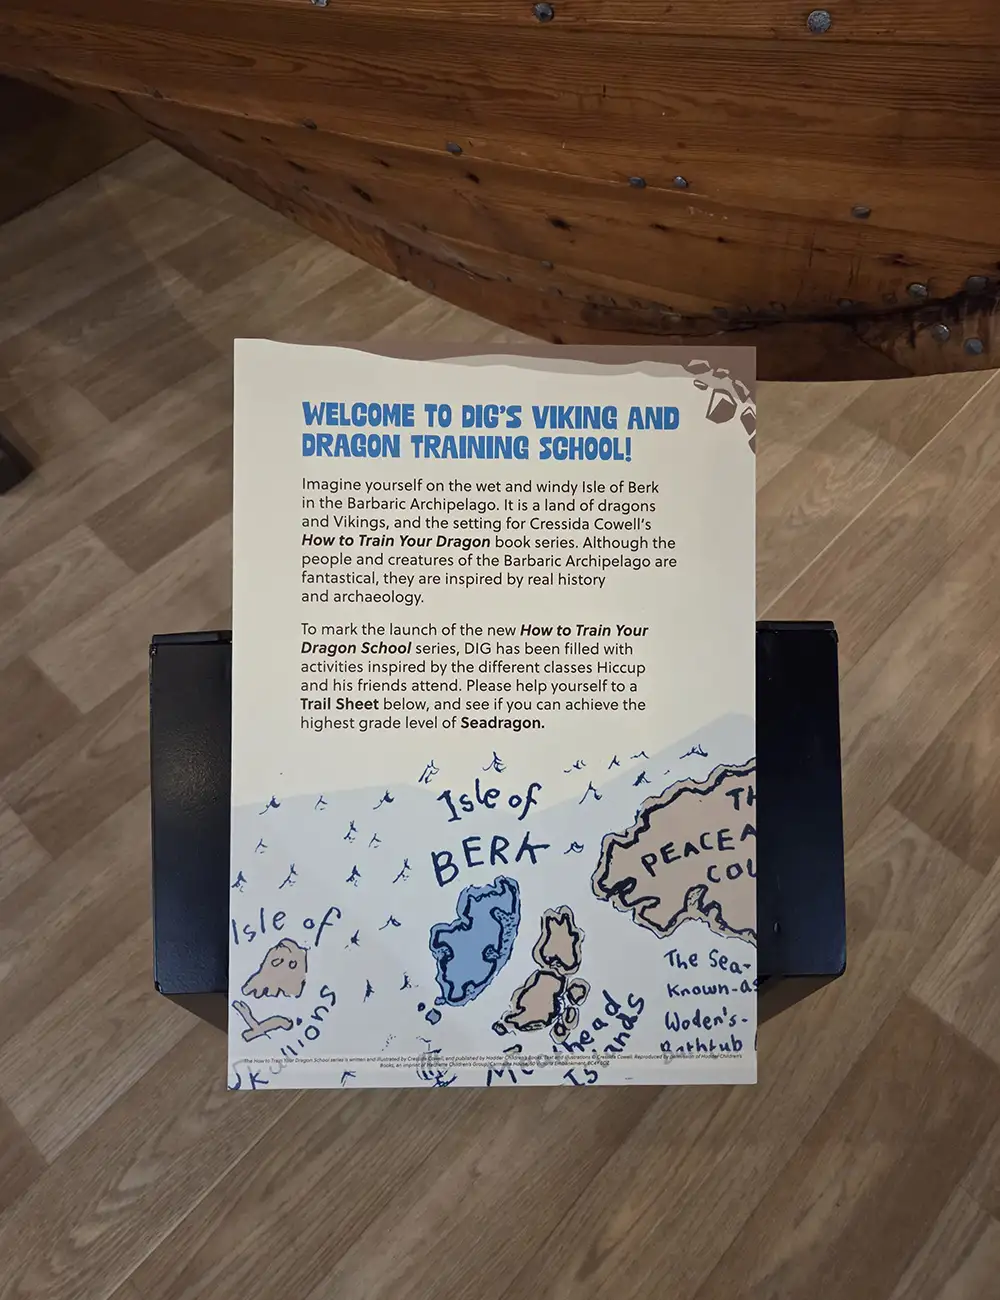 WELCOME TO DIG'S VIKING AND
DRAGON TRAINING SCHOOL!
Imagine yourself on the wet and windy Isle of Berk
in the Barbaric Archipelago. It is a land of dragons
and Vikings, and the setting for Cressida Cowell's
How to Train Your Dragon book series. Although the
people and creatures of the Barbaric Archipelago are
fantastical, they are inspired by real history
and archaeology.
To mark the launch of the new How to Train Your
Dragon School series, DIG has been filled with
activities inspired by the different classes Hiccup
and his friends attend. Please help yourself to a
Trail Sheet below, and see if you can achieve the
highest grade level of Seadragon.
Isle of
BERK
PEACEA
Isle of
The Sea-
Known-as
Woden's-
Bathtub
The How to Train Your Dragon School series is written and illustrated by Cressida Cowell, and published by Hodder Children's Books. Text and illustrations © Cressida Cowell. Reproduced by permission of Hodder Children's
Books, an imprint of Hachette Children's Group, Carmelite House, 50 Victoria Embankment,